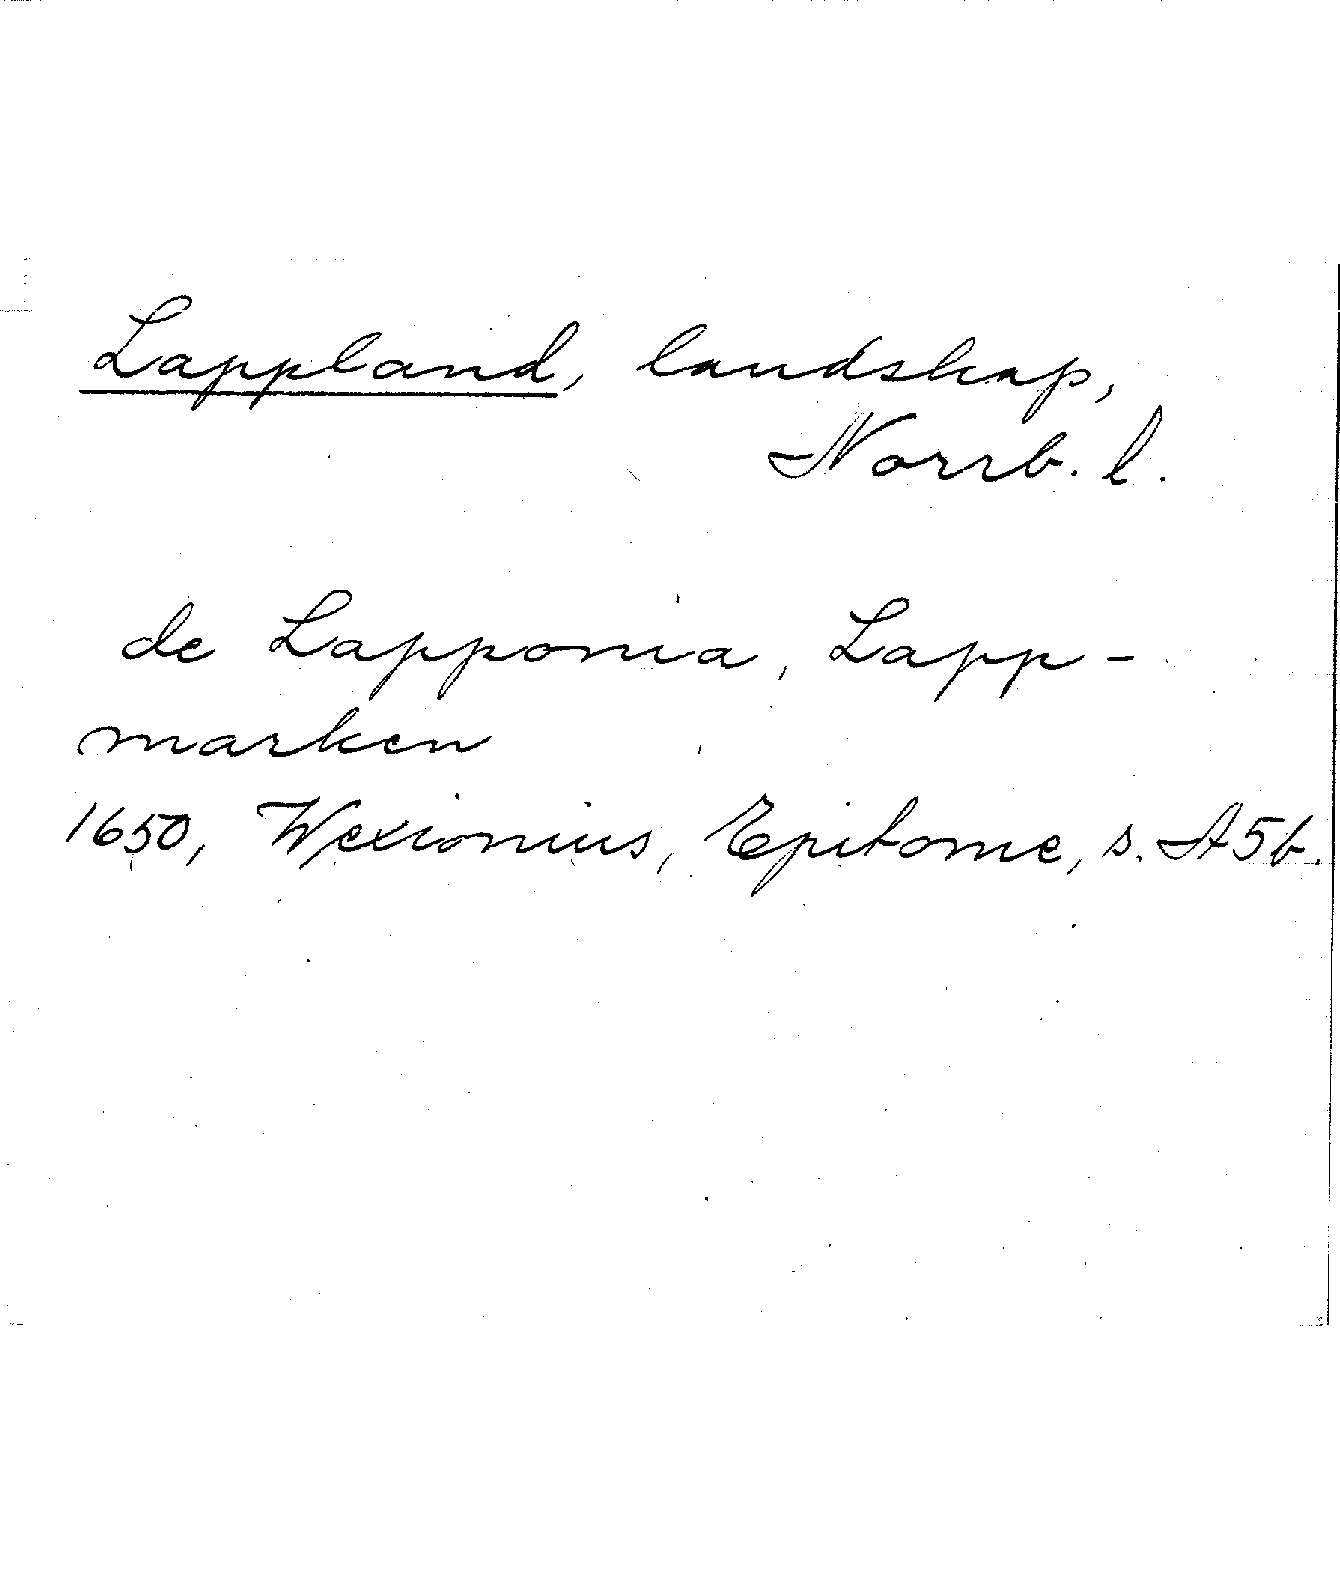 Lappland, landskap,
Norrb. l.
de Lapponia, Lapp-
marken
1650, Wexionius, Epitome, s. A5b.